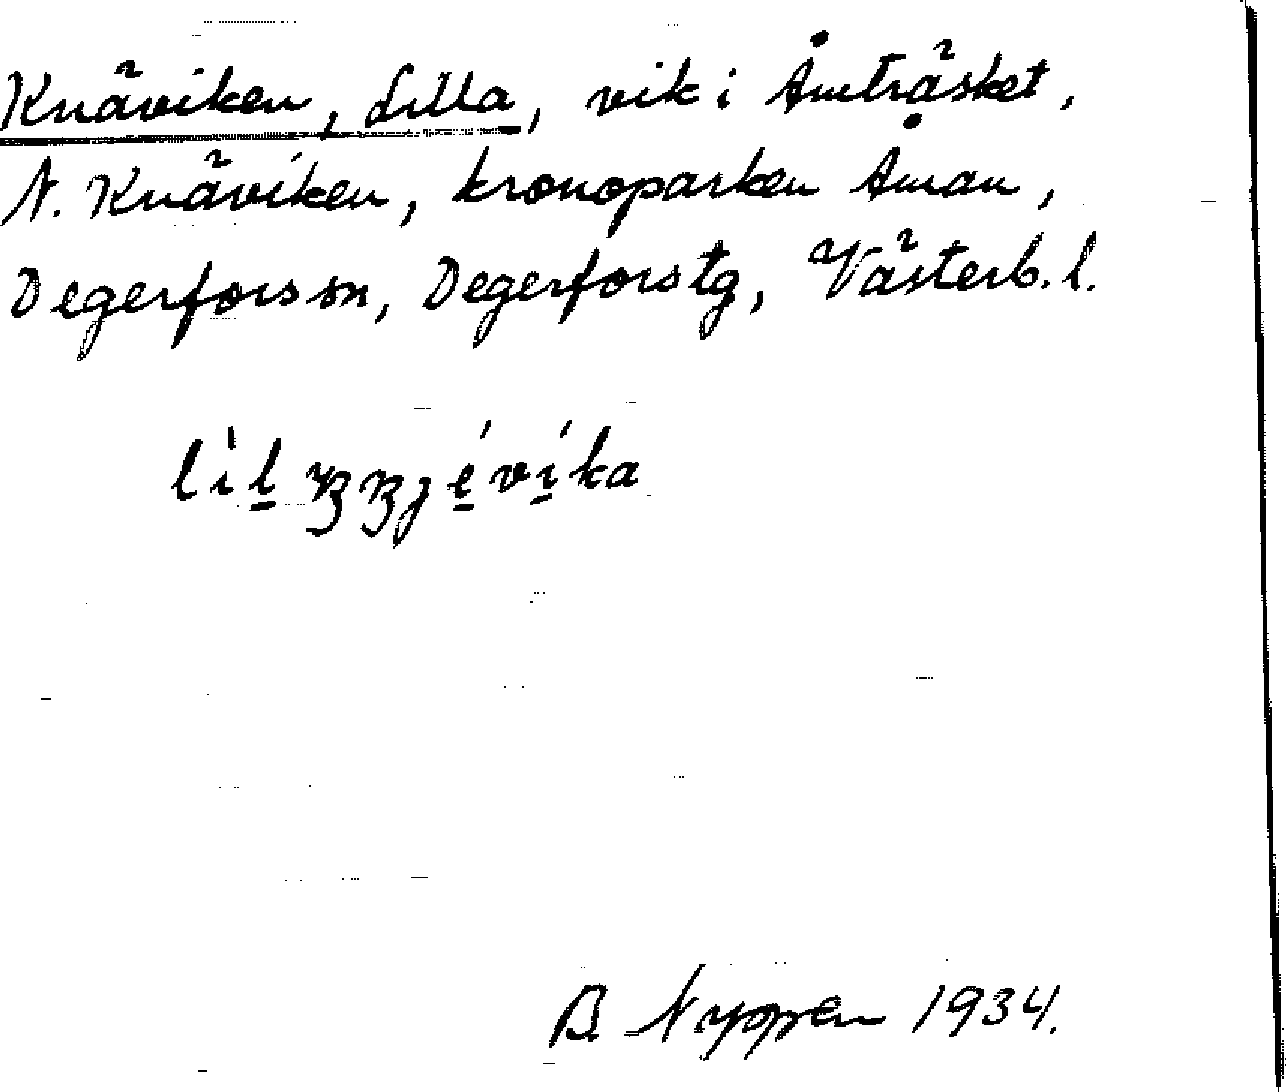 Knäviken, Lilla, vik i Åmträsket,
N. Knäviken, kronoparken Åman,
Degerfors sn, Degerfors tg, Västerb. l.
B. Nyppen 1934.